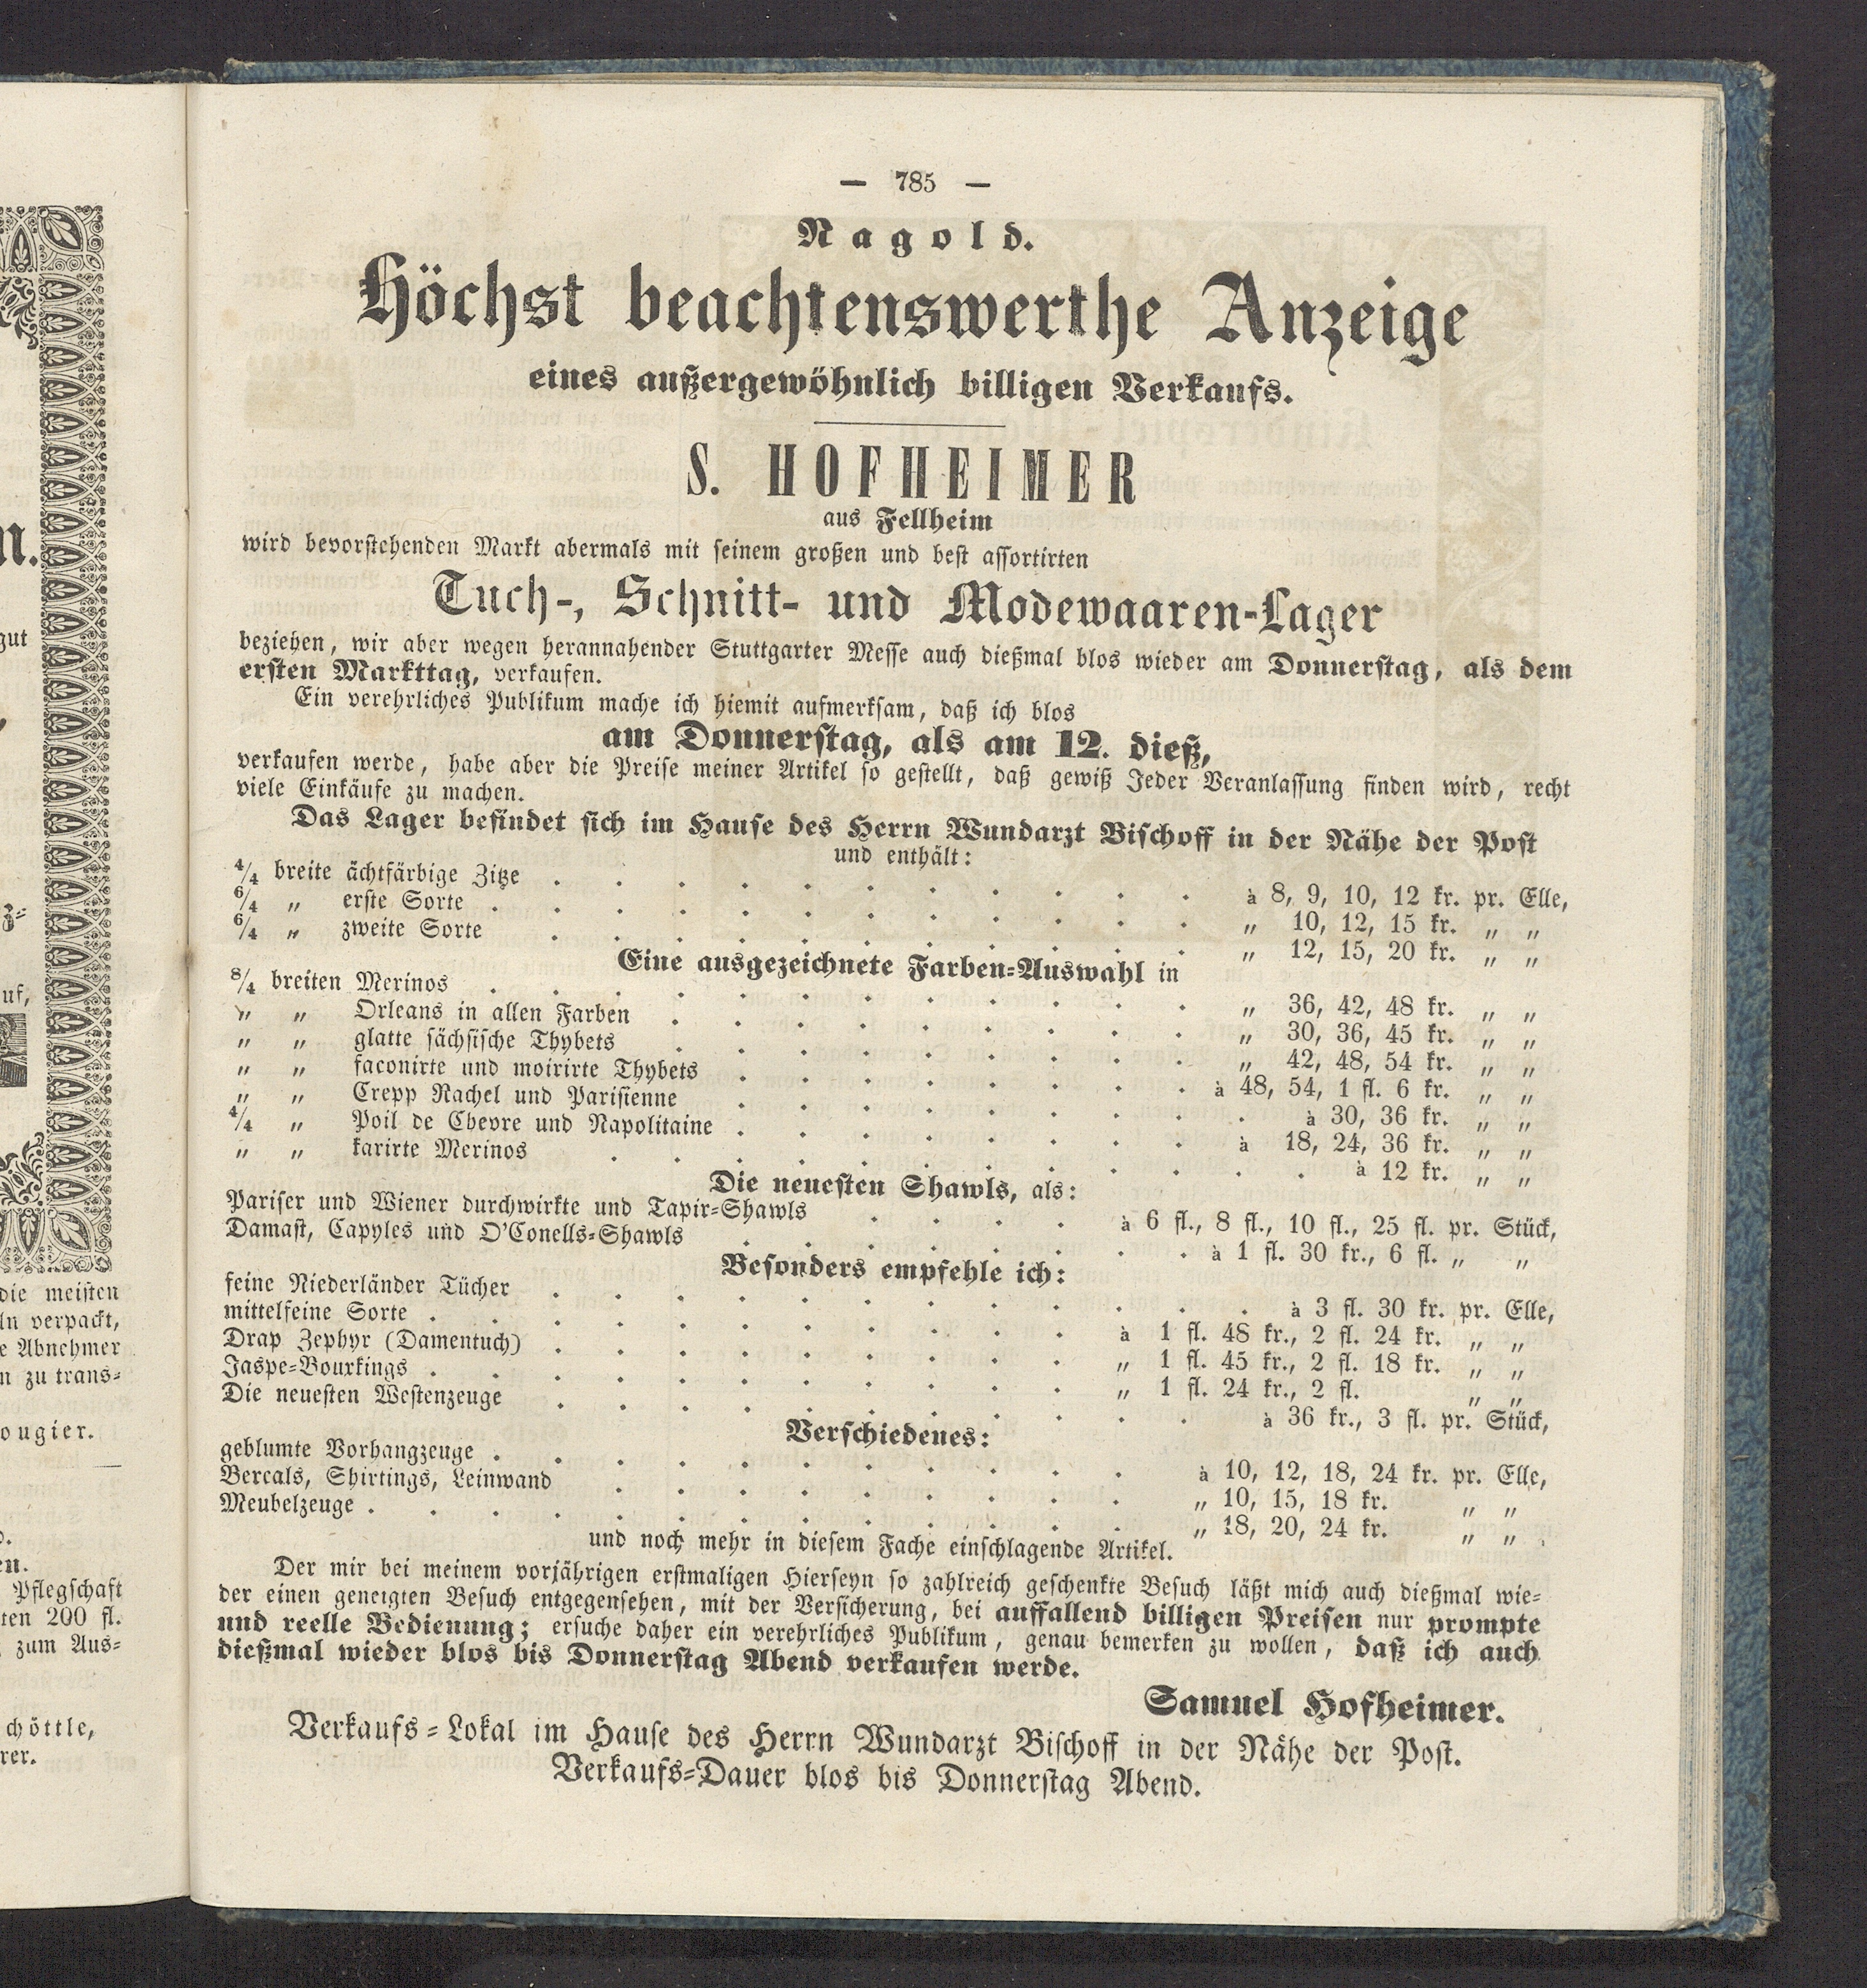 n.
gut
z=
uf,
die meisten
ln verpackt,
e Abnehmer
n zu trans=
ougier.
en.
Pflegschaft
ten 200 fl.
zum Aus=
chöttle,
rer.
— 785 —
Nagold.
Höchst beachtenswerthe Anzeige
eines außergewöhnlich billigen Verkaufs.
S. HOFHEIMER
aus Fellheim
wird bevorstehenden Markt abermals mit seinem großen und best assortirten
Tuch-, Schnitt- und Modewaaren-Lager
beziehen, wir aber wegen herannahender Stuttgarter Messe auch dießmal blos wieder am Donnerstag, als dem
ersten Markttag, verkaufen.
Ein verehrliches Publikum mache ich hiemit aufmerksam, daß ich blos
am Donnerstag, als am 12. dieß,
verkaufen werde, habe aber die Preise meiner Artikel so gestellt, daß gewiß Jeder Veranlassung finden wird, recht
viele Einkäufe zu machen.
Das Lager befindet sich im Hause des Herrn Wundarzt Bischoff in der Nähe der Post
und enthält:
4/4 breite ächtfärbige Zitze . . . . . . . . . . . à 8, 9, 10, 12 kr. pr. Elle,
6/4 „ erste Sorte . . . . . . . . . . . . „ 10, 12, 15 kr. „ „
6/4 „ zweite Sorte . . . . . . . . . . . „ 12, 15, 20 kr. „ „
Eine ausgezeichnete Farben=Auswahl in
8/4 breiten Merinos . . . . . . . . . . . . „ 36, 42, 48 kr. „ „
„ „ Orleans in allen Farben . . . . . . . . . „ 30, 36, 45 kr. „ „
„ „ glatte sächsische Thybets . . . . . . . . . „ 42, 48, 54 kr. „ „
„ „ faconirte und moirirte Thybets . . . . . . . . à 48, 54, 1 fl. 6 kr. „ „
„ „ Crepp Rachel und Parisienne . . . . . . . . . à 30, 36 kr. „ „
4/4 „ Poil de Chevre und Napolitaine . . . . . . . . à 18, 24, 36 kr. „ „
„ „ karirte Merinos . . . . . . . . . . . . à 12 kr. „ „
Die neuesten Shawls, als:
Pariser und Wiener durchwirkte und Tapir=Shawls . . . . à 6 fl., 8 fl., 10 fl., 25 fl. pr. Stück,
Damast, Capyles und O'Conells=Shawls . . . . . . . . à 1 fl. 30 kr., 6 fl. „ „
Besonders empfehle ich:
feine Niederländer Tücher . . . . . . . . . . . . à 3 fl. 30 kr. pr. Elle,
mittelfeine Sorte . . . . . . . . . . . à 1 fl. 48 kr., 2 fl. 24 kr. „ „
Drap Zephyr (Damentuch) . . . . . . . . . „ 1 fl. 45 kr., 2 fl. 18 kr. „ „
Jaspe=Bourkings . . . . . . . . . . . „ 1 fl. 24 kr., 2 fl. „ „
Die neuesten Westenzeuge . . . . . . . . . . . à 36 kr., 3 fl. pr. Stück,
Verschiedenes:
geblumte Vorhangzeuge . . . . . . . . . . . à 10, 12, 18, 24 kr. pr. Elle,
Bercals, Shirtings, Leinwand . . . . . . . . . „ 10, 15, 18 kr. „ „
Meubelzeuge . . . . . . . . . . . . . „ 18, 20, 24 kr. „ „
und noch mehr in diesem Fache einschlagende Artikel.
Der mir bei meinem vorjährigen erstmaligen Hierseyn so zahlreich geschenkte Besuch läßt mich auch dießmal wie=
der einen geneigten Besuch entgegensehen, mit der Versicherung, bei auffallend billigen Preisen nur prompte
und reelle Bedienung; ersuche daher ein verehrliches Publikum, genau bemerken zu wollen, daß ich auch
dießmal wieder blos bis Donnerstag Abend verkaufen werde.
Samuel Hofheimer.
Verkaufs=Lokal im Hause des Herrn Wundarzt Bischoff in der Nähe der Post.
Verkaufs=Dauer blos bis Donnerstag Abend.